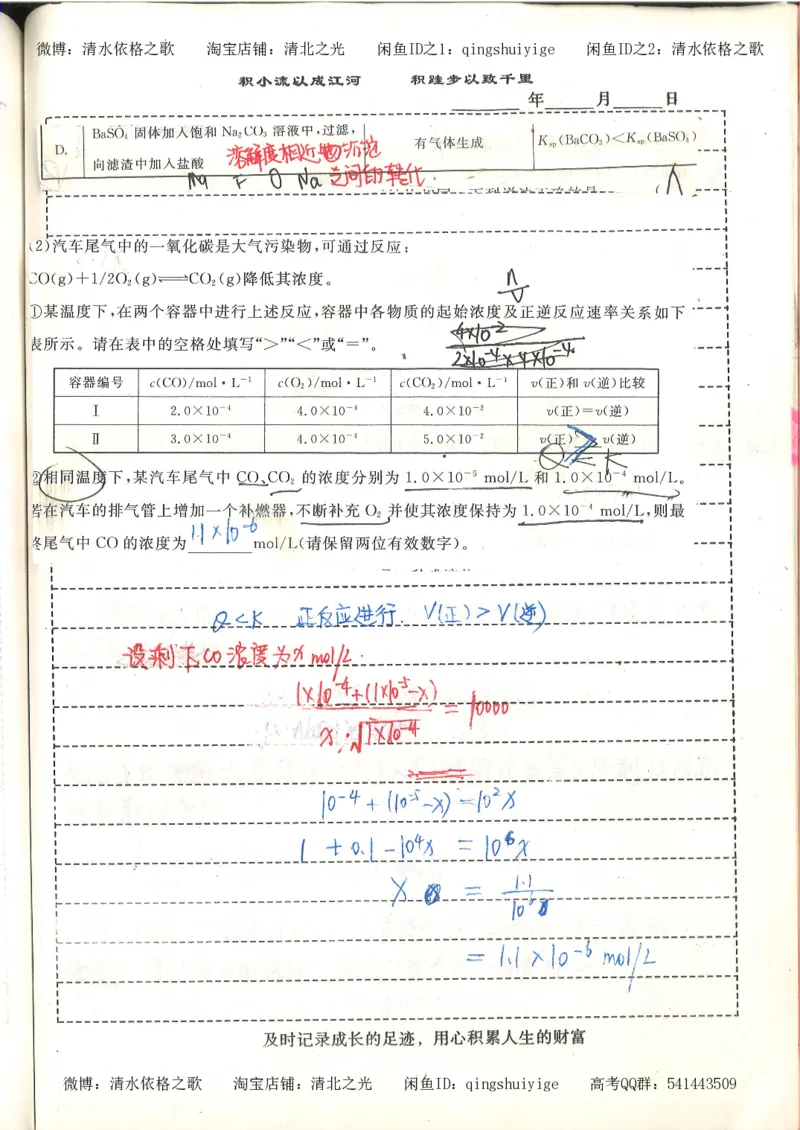 微博：清水依格之歌 淘宝店铺：清北之光 闲鱼ID之1：qingshuiyige 闲鱼ID之2：清水依格之歌
积小流以成江河 积跬步以致千里
年 月 日
D. BaSO₄ 固体加入饱和 Na₂CO₃ 溶液中，过滤，向滤渣中加入盐酸 有气体生成 Ksp(BaCO₃)<Ksp(BaSO₄)
溶解度相近物质
之间的转化.
(2)汽车尾气中的一氧化碳是大气污染物，可通过反应：
CO(g)+1/2O₂(g)⇌CO₂(g)降低其浓度。
①某温度下，在两个容器中进行上述反应，容器中各物质的起始浓度及正逆反应速率关系如下
表所示。请在表中的空格处填写“>”“<”或“=”。
n/V
4×10⁻²
2×10⁻⁴×4×10⁻⁴
容器编号 c(CO)/mol·L⁻¹ c(O₂)/mol·L⁻¹ c(CO₂)/mol·L⁻¹ v(正)和 v(逆)比较
Ⅰ 2.0×10⁻⁴ 4.0×10⁻⁴ 4.0×10⁻² v(正)=v(逆)
Ⅱ 3.0×10⁻⁴ 4.0×10⁻⁴ 5.0×10⁻² v(正) > v(逆)
Q K
②相同温度下，某汽车尾气中 CO、CO₂ 的浓度分别为 1.0×10⁻⁵ mol/L 和 1.0×10⁻⁴ mol/L。
若在汽车的排气管上增加一个补燃器，不断补充 O₂ 并使其浓度保持为 1.0×10⁻⁴ mol/L，则最
终尾气中 CO 的浓度为 1.1×10⁻⁶ mol/L(请保留两位有效数字)。
Q<K 正反应进行. V(正)>V(逆)
设剩下CO浓度为x mol/L.
1×10⁻⁴+(1×10⁻⁵-x)
= 10000
x·√1×10⁻⁴
10⁻⁴+(10⁻⁵-x)=10²x
1+0.1-10⁴x = 10⁶x
x = 1.1/10⁶
= 1.1×10⁻⁶ mol/L
及时记录成长的足迹，用心积累人生的财富
微博：清水依格之歌 淘宝店铺：清北之光 闲鱼ID：qingshuiyige 高考QQ群：541443509